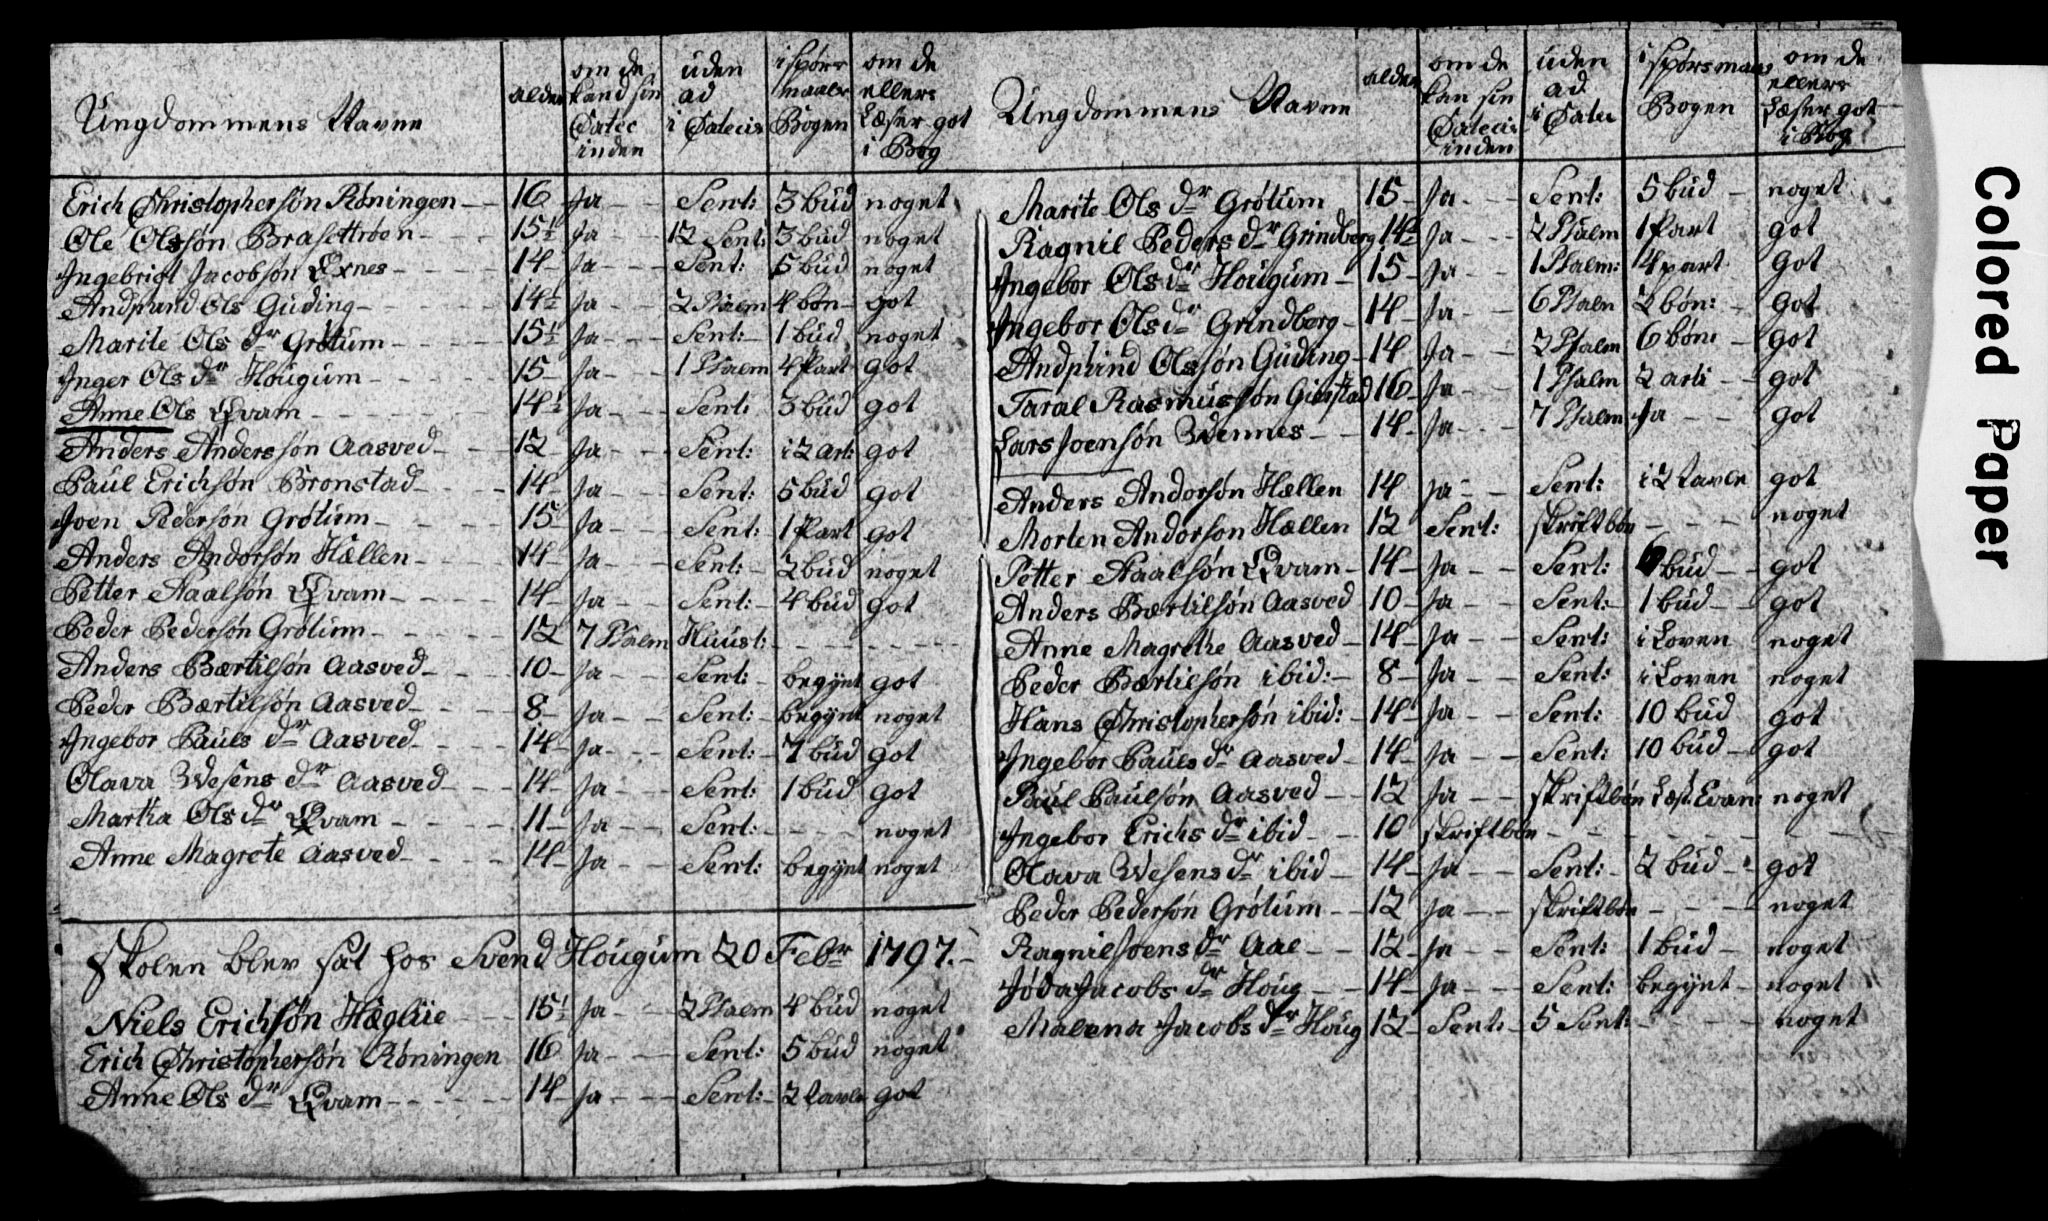 Ungdommens Navne | alder | om de kand sin Catec inden | uden ad i Catecis | i spørs maals Bogen | om de ellers Læser got i Bog
Erich Christophersøn Røningen | 16 | Ja | Sent: | 3 bud | noget
Ole Olssøn Brasettrøen | 15½ | Ja | 12 Sent: | 3 bud | noget
Ingebrigt Jacobsøn Exnes | 14 | Ja | Sent: | 5 bud | noget
Andpund Ols Guding | 14½ | Ja | 2 Psalm | 4 bøn | got
Marite Ols dr Grøtum | 15½ | Ja | Sent: | 1 bud | noget
Inger Ols dr Hougum | 15 | Ja | 1 Psalm | 4 Part | got
Anne Ols Qvam | 14½ | Ja | Sent: | 3 bud | got
Anders Anderssøn Aasved | 12 | Ja | Sent: | i 2 art: | got
Paul Erichsøn Bronstad | 14 | Ja | Sent: | 5 bud | got
Joen Pedersøn Grøtum | 15 | Ja | Sent: | 1 Part | got
Anders Andorsøn Hællen | 14 | Ja | Sent: | 2 bud | noget
Petter Paalsøn Qvam | 14 | Ja | Sent: | 4 bud | got
Peder Pedersøn Grøtum | 12 | 7 Psalm | Huust:
Anders Bærtilsøn Aasved | 10 | Ja | Sent: | begynt | got
Peder Bærtilsøn Aasved | 8 | Ja | Sent: | begynt | noget
Ingebor Pauls dr Aasved | 14 | Ja | Sent: | 7 bud | got
Olava Wesens dr Aasved | 14 | Ja | Sent: | 1 bud | got
Martha Ols dr Qvam | 11 | Ja | Sent: | noget
Anne Magrete Aasved | 14 | Ja | Sent: | begynt | noget
Skolen blev sat hos Svend Hougum 20 Febr 1797.
Niels Erichsøn Hæglie | 15½ | Ja | 2 Psalm | 4 bud | noget
Erich Christophersøn Røningen | 16 | Ja | Sent: | 5 bud | noget
Anne Ols dr Qvam | 14 | Ja | Sent: | 2 tavle | got
Ungdommens Navne | alder | om de kan sin Catecis inden | uden ad i Catec | i spørsmaals Bogen | om de ellers Læser got i Bog
Marite Ols dr Grøtum | 15 | Ja | Sent: | 5 bud | noget
Ragnil Peders dr Grindberg | 14½ | Ja | 2 Psalm | 1 Part | got
Ingebor Ols dr Hougum | 15 | Ja | 1 Psalm: | 4 part | Got
Ingebor Ols dr Grindberg | 14 | Ja | 6 Psalm | 2 bøn: | Got
Andpund Olssøn Guding | 14 | Ja | 2 Psalm | 6 bøn: | got
Taral Rasmussøn Gistad | 16 | Ja | 1 Psalm | 2 arti | got
Lars Joensøn Wennes | 14 | Ja | 7 Psalm | Ja | got
Anders Andorsøn Hællen | 14 | Ja | Sent: | i 2 tavle | got
Morten Andorsøn Hællen | 12 | Sent: | skriftbøn | noget
Petter Paalsøn Qvam | 14 | Ja | Sent: | 6 bud | got
Anders Bærtilsøn Aasved | 10 | Ja | Sent: | 1 bud | got
Anne Magrethe Aasved | 14 | Ja | Sent: | i Loven | noget
Peder Bærtilsøn ibid: | 8 | Ja | Sent: | i Loven | noget
Hans Christophersøn ibid: | 14 | Ja | Sent: | 10 bud | got
Ingebor Pauls dr Aasved | 14 | Ja | Sent: | 10 bud | got
Paul Paulsøn Aasved | 12 | Ja | skriftbøn | Læst: Evan: | noget
Ingebor Erichs dr ibid | 10 | skriftbøn
Olava Wesens dr ibid | 14 | Ja | Sent: | 2 bud | got
Peder Pedersøn Grøtum | 12 | Ja | skriftbøn | noget
Ragnil Joens dr Aae | 12 | Ja | Sent: | 1 bud | noget
Jøda Jacobs dr Houg | 14 | Ja | Sent: | begynt | noget
Malena Jacobs dr Houg | 12 | Sent: | 5 Sent: | noget
Colored Paper